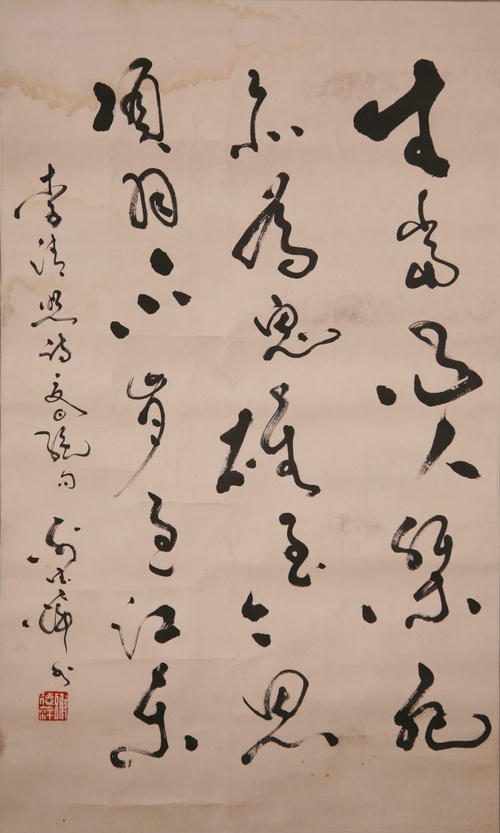 生當作人傑死
亦為鬼雄至今思
項羽不肯過江東
李清照詩夏日絕句 书